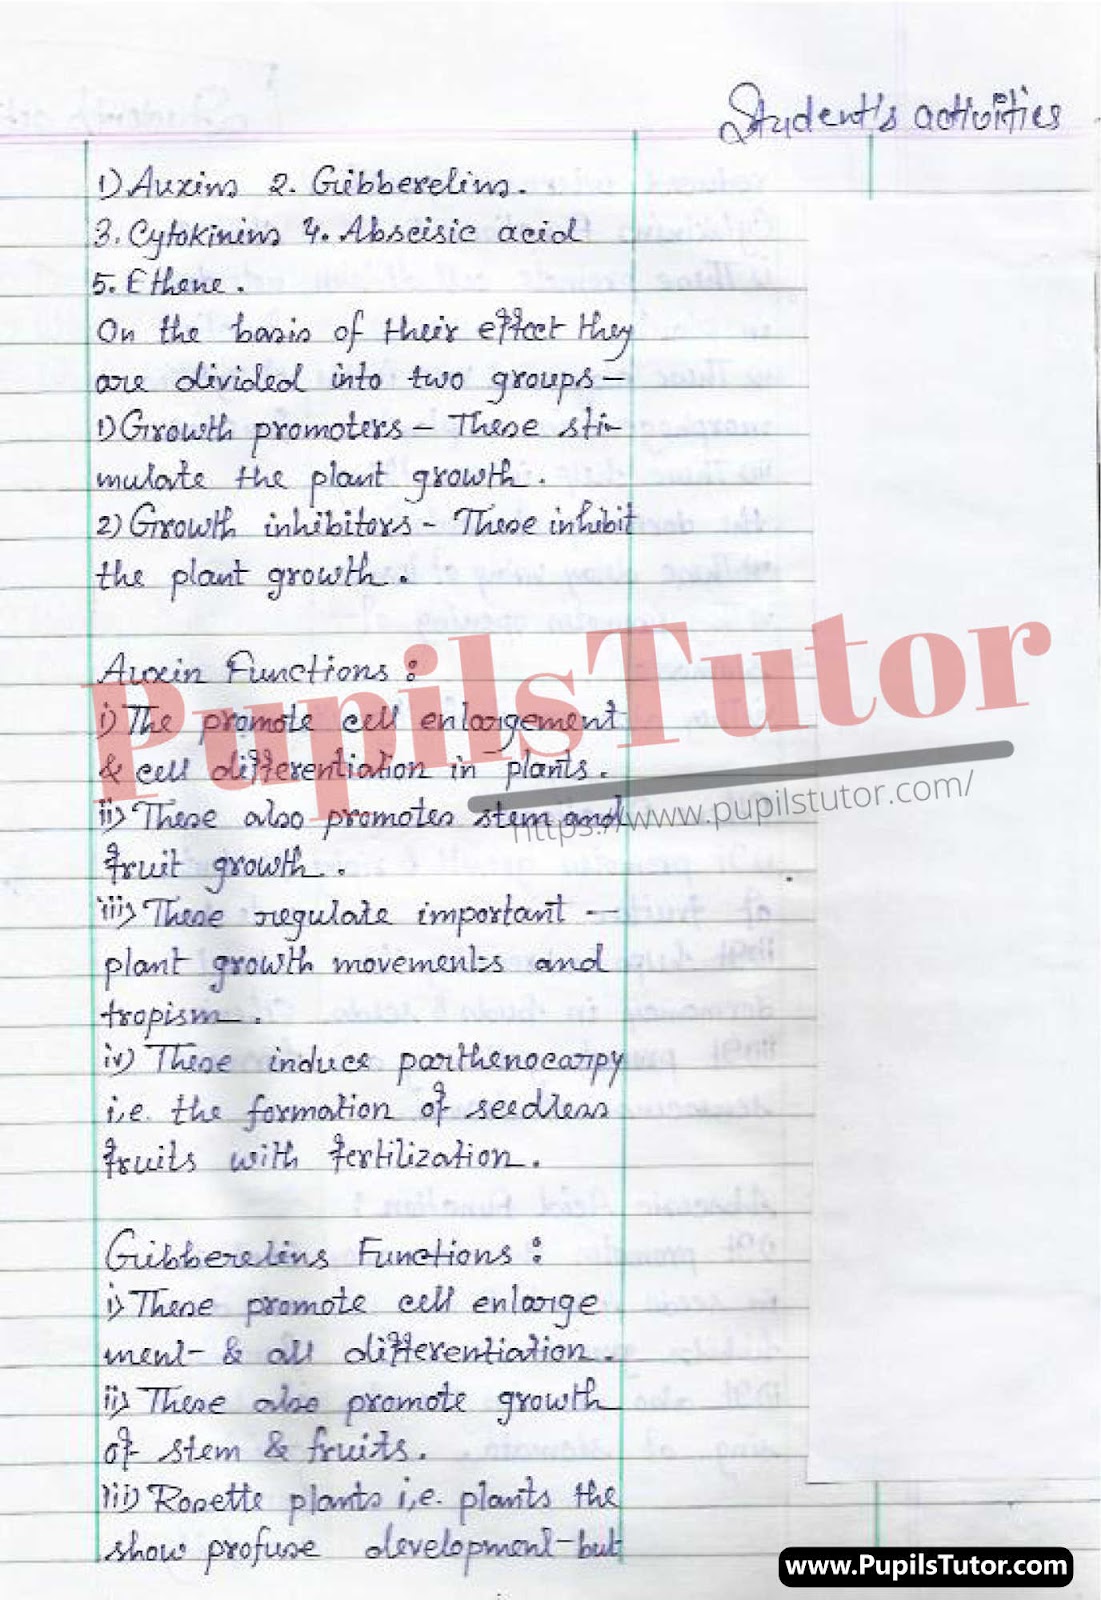 Student's activities
1) Auxins 2. Gibberelins.
3. Cytokinins 4. Abscisic acid
5. Ethene.
On the basis of their effect they
are divided into two groups-
1) Growth promoters - These sti-
mulate the plant growth.
2) Growth inhibitors - These inhibit
the plant growth.
Auxin Functions :
i) The promote cell enlargement
& cell differentiation in plants.
ii) These also promotes stem and
fruit growth.
iii) These regulate important -
plant growth movements and
tropism.
iv) These induce parthenocarpy
i.e. the formation of seedless
fruits with fertilization.
Gibberelins Functions :
i) These promote cell enlarge
ment & all differentiation.
ii) These also promote growth
of stem & fruits.
iii) Rosette plants i.e. plants the
show profuse development but
PupilsTutor
https://www.pupilstutor.com/
www.PupilsTutor.com